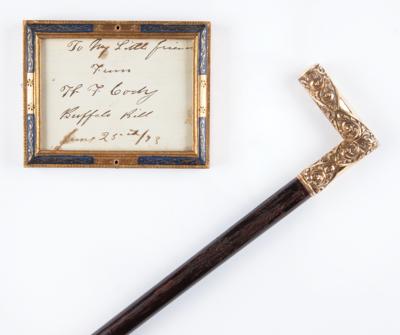 To My Little friend
From
W. F. Cody
Buffalo Bill
June 25th/83